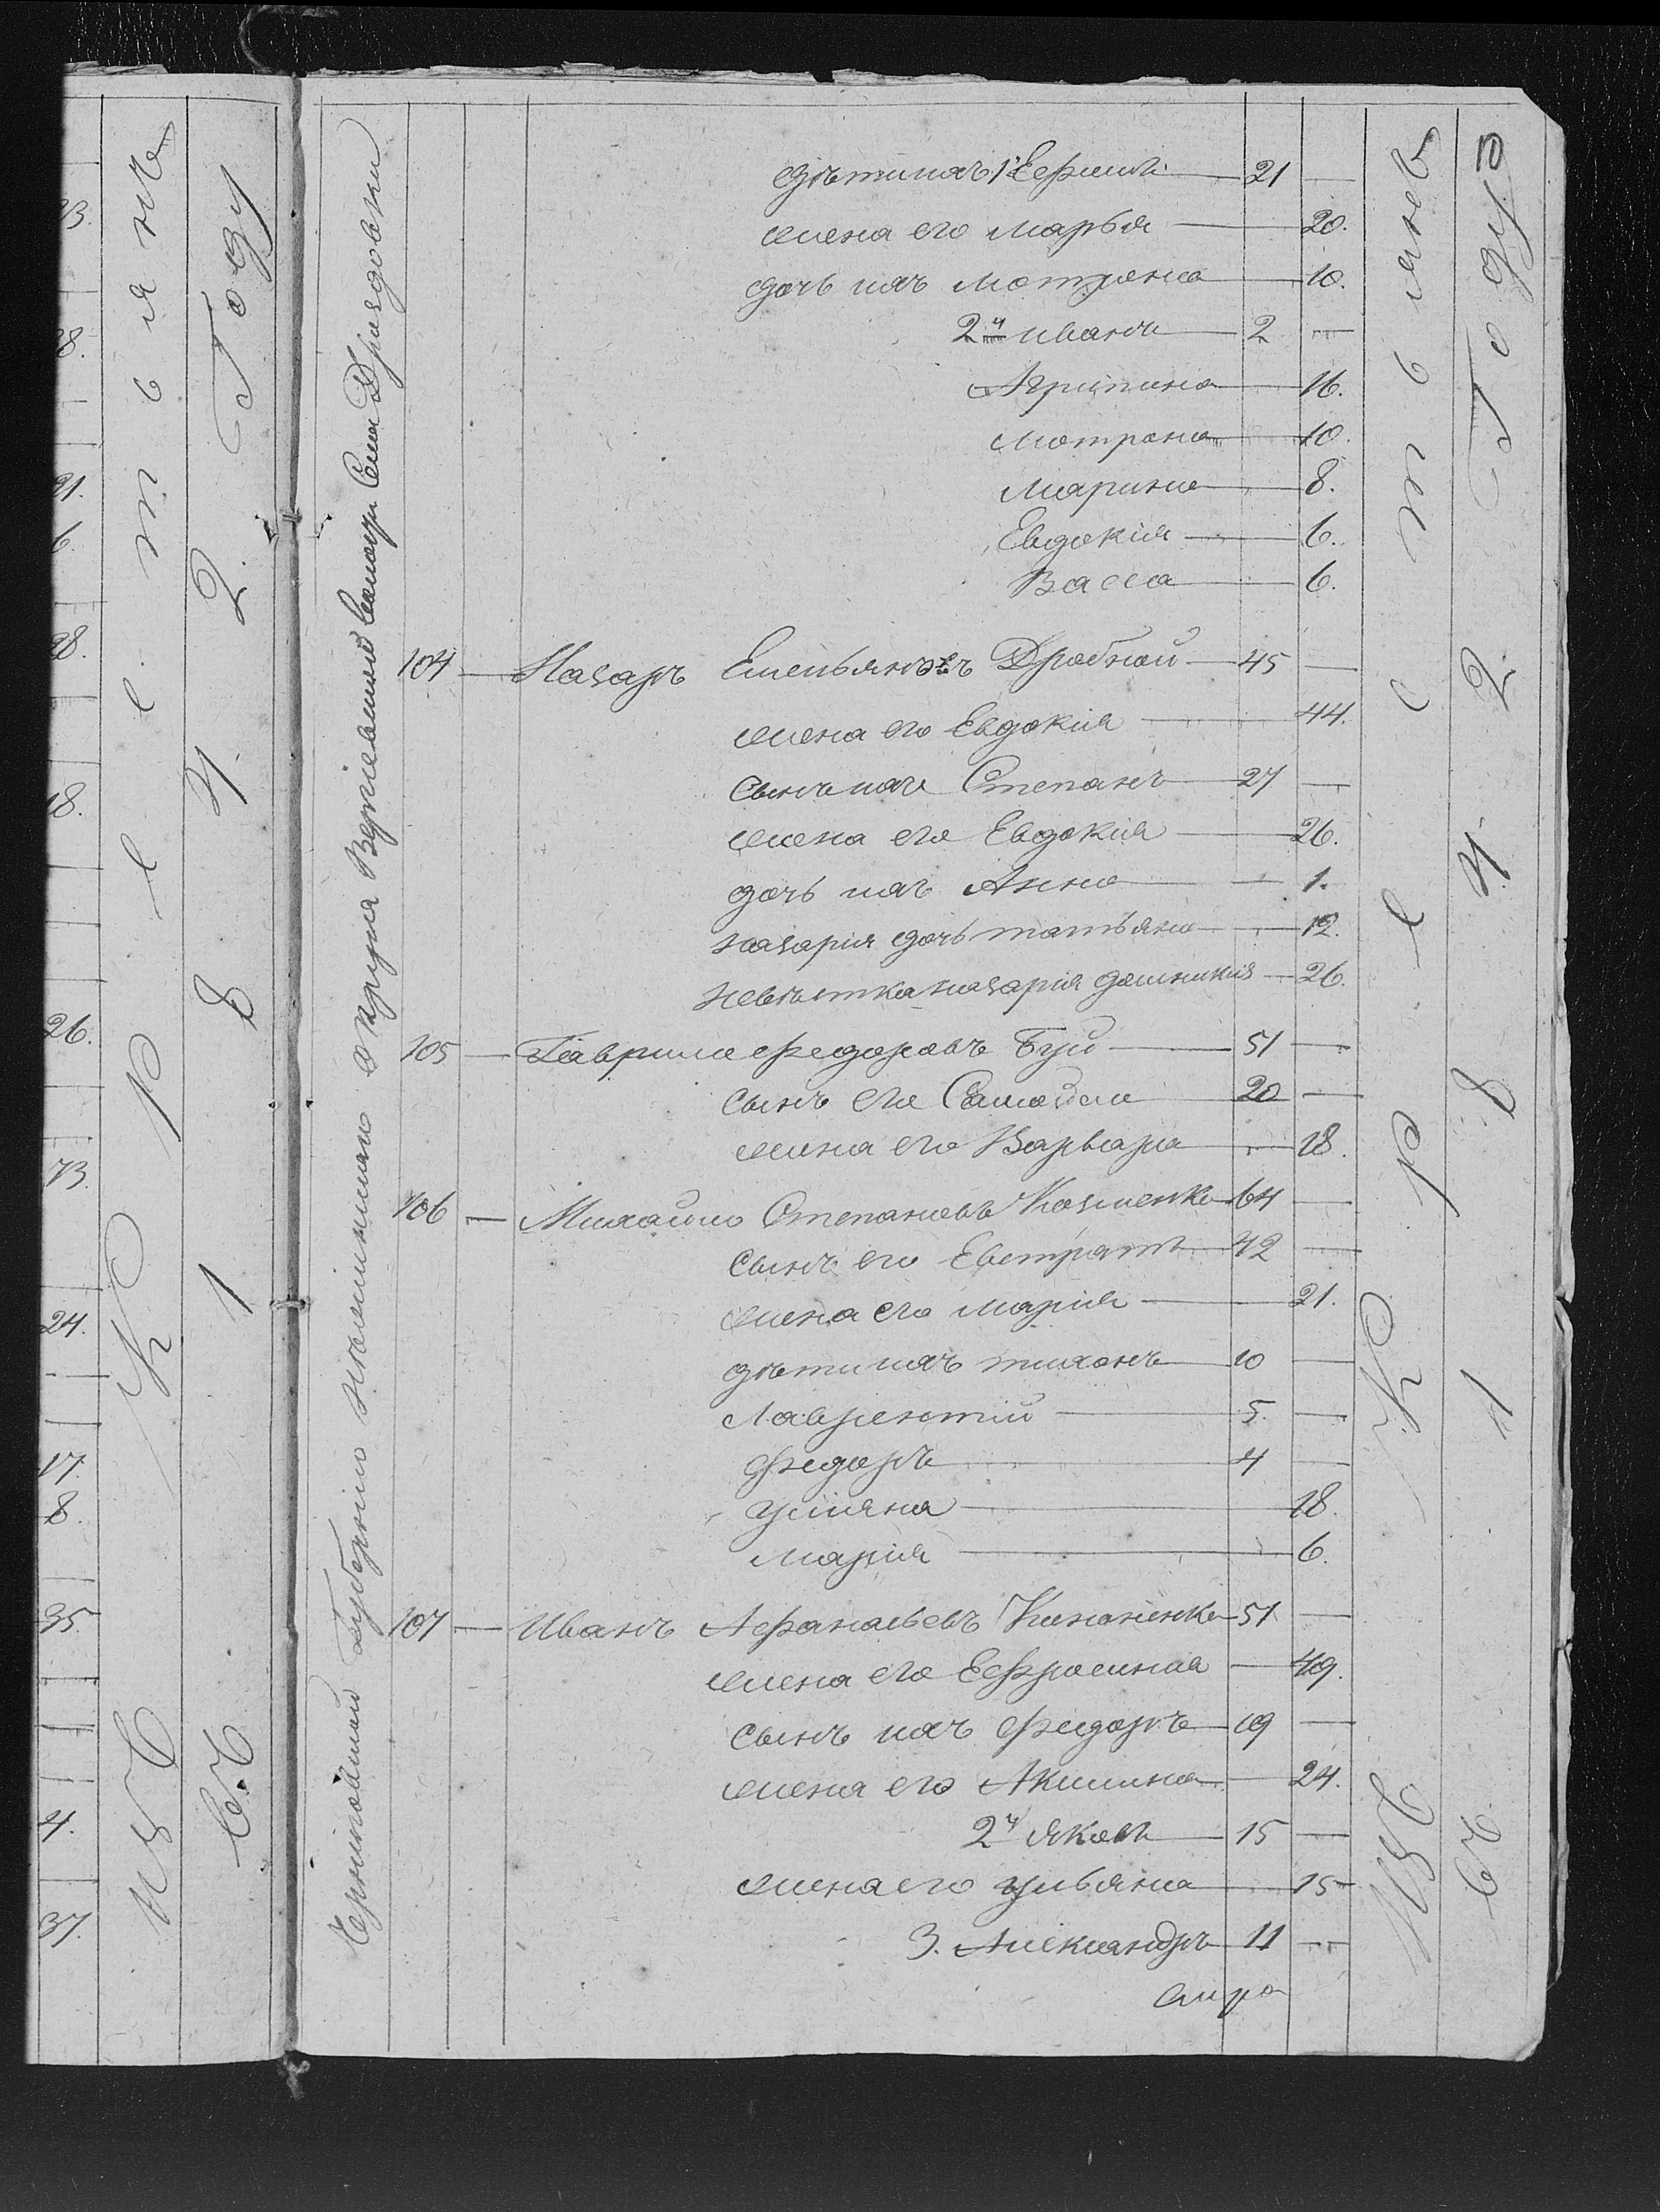 23.
28.
21.
6.
28.
18.
26.
73.
24.
17.
8.
35.
4.
37.
изъ Крестьянъ
въ 1842 Году
Черниговской Губернии Нежинскаго округа Вертіевской волости Села Дроздовки
дѣти ихъ 1й Ефимъ 21 —
жена его марья 20.
дочь ихъ мотрона 10.
2й иванъ 2 —
Агрипина 16.
мотрона 10.
марина 8.
Евдокія 6.
Васса 6.
104 — Назаръ Емельяновъ Дробной 45 —
жена его Евдокія 44.
сынъ ихъ Степанъ 27 —
жена его Евдокія 26.
дочь ихъ Анна 1.
назарія дочь татьяна 12.
невѣстка назарія домникія 26.
105 — Гаврило федоровъ Буй 51 —
сынъ его Самойло 20 —
жена его Варвара 18.
106 — Михайло Степановъ Козменко 64 —
сынъ его Евстратъ 42 —
жена его марія 21.
дѣти ихъ тихонъ 10 —
Лаврентій 5. —
федоръ 4 —
уліяна 18.
марія 6.
107 — Иванъ Афанасьевъ Кононенко 51 —
жена его Ефросинія 49.
сынъ ихъ федоръ 19 —
жена его Акилина 24.
2й яковъ 15 —
жена его ульяна 15
3. Александръ 11 —
изъ Крестьянъ
въ 1842 Году